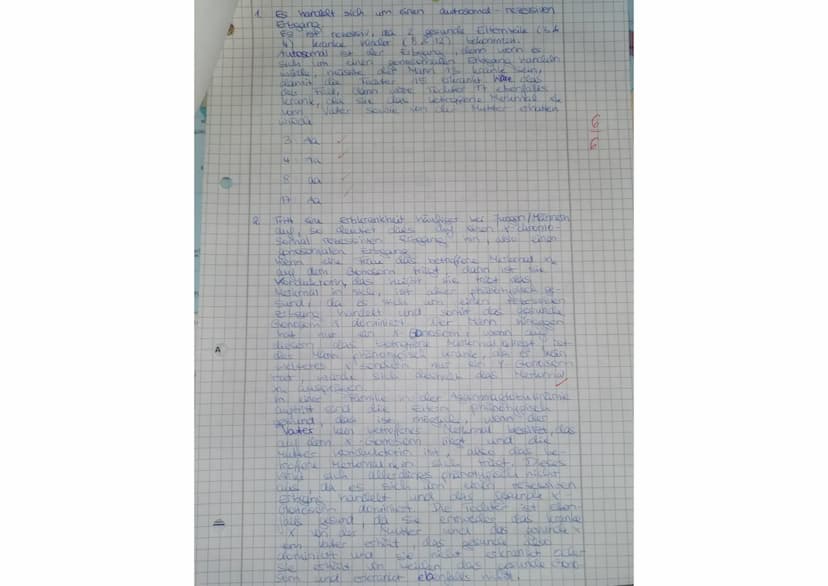 1. Es handelt sich um einen autosomal-rezessiven
Erbgang.
Es ist rezessiv, da 2 gesunde Elternteile (3 &
4) kranke Kinder (8 & 12) bekommen.
Autosomal ist der Erbgang, denn wenn es
sich um einen gonosomalen Erbgang handeln
würde, müsste der Mann 13 krank sein,
damit die Tochter erkrankt. Wäre das
der Fall, dann wäre Tochter 17 ebenfalls
krank, da sie das betroffene Merkmal
vom Vater sowie von der Mutter erhalten
würde.
3 Aa
4 Aa
8 aa
17 Aa
6/6
2. Tritt eine Erbkrankheit häufiger bei Jungen/Männern
auf, so deutet dies auf einen x-chromo-
somal rezessiven Erbgang hin, also einen
gonosomalen Erbgang.
Wenn eine Frau das betroffene Merkmal
auf dem Gonosom trägt, dann ist sie
Konduktorin, das heißt sie trägt das
Merkmal in sich, ist aber phänotypisch ge-
sund, da es sich um einen rezessiven
Erbgang handelt und somit das gesunde
Gonosom x dominiert. Der Mann hingegen
hat nur ein x Gonosom, wenn auf
diesem das betroffene Merkmal liegt, ist
der Mann phänotypisch krank, da er kein
weiteres x sondern nur ein Y-Gonosom
hat, würde sich deshalb das Merkmal
ausprägen.
In einer Familie in der
auftritt sind die Eltern phänotypisch
gesund, das ist möglich, wenn der
Vater kein betroffenes Merkmal besitzt, das
auf dem x-Gonosom liegt und die
Mutter Konduktorin ist, also das be-
troffene Merkmal in sich trägt. Dieses
sich allerdings phänotypisch nicht
aus, da es sich um einen rezessiven
Erbgang handelt und das gesunde x
Gonosom dominiert. Die Tochter ist eben-
falls gesund, da sie entweder das kranke
x von der Mutter und das gesunde x
vom Vater erhält, das gesunde also
dominiert und sie nicht erkrankt oder
sie erhält von beiden das gesunde Gono-
som und erkrankt ebenfalls nicht.